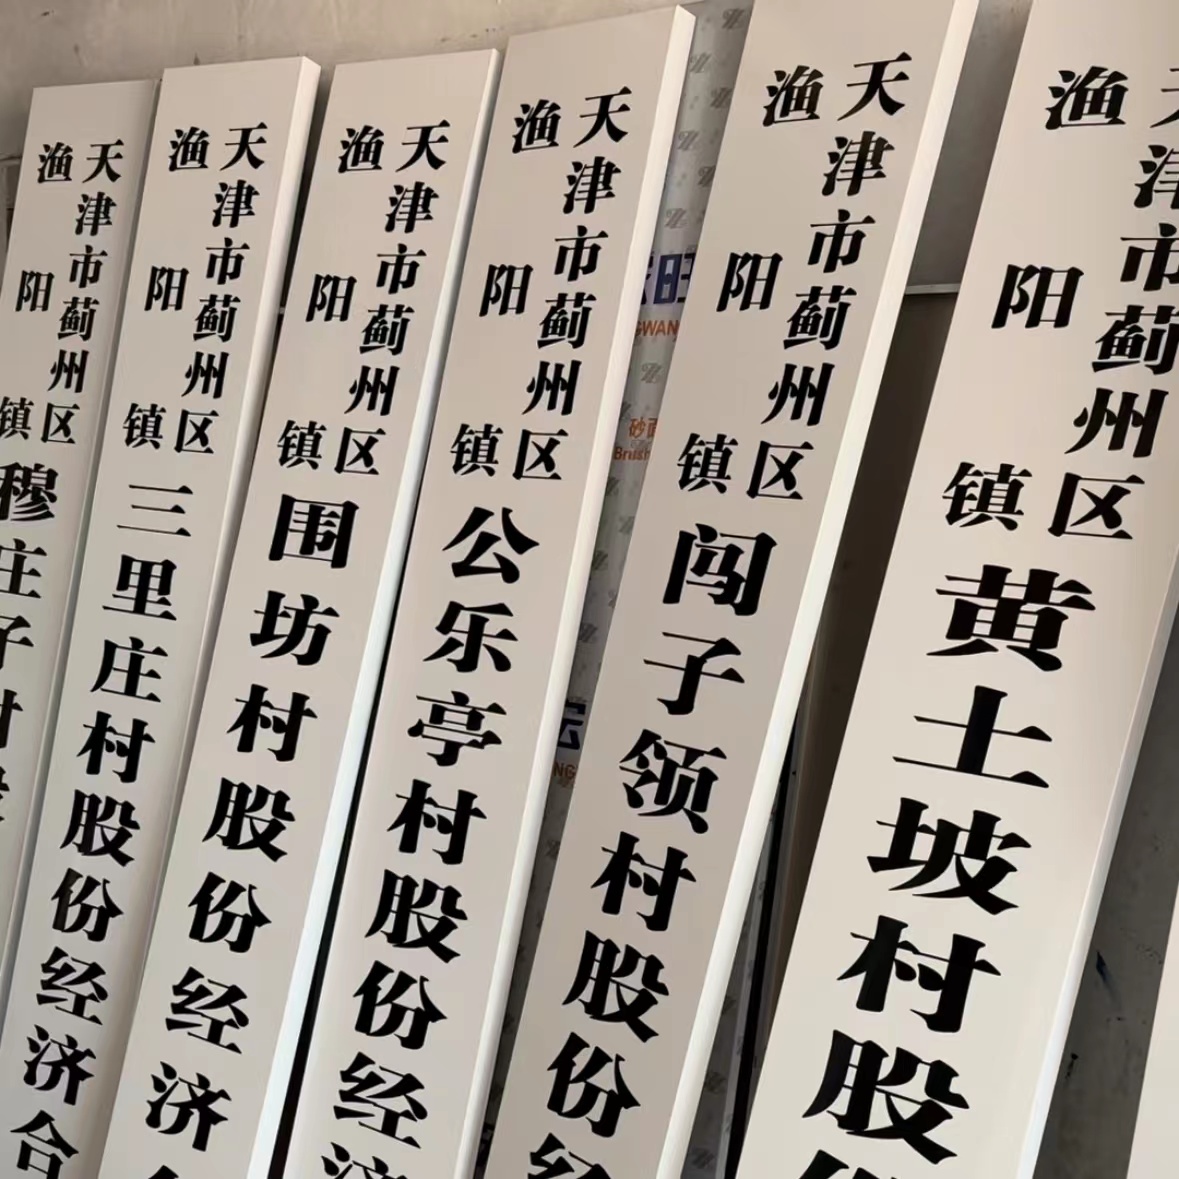 天津市蓟州区
渔阳镇
穆庄子村
天津市蓟州区
渔阳镇
三里庄村股份经济合
天津市蓟州区
渔阳镇
围坊村股份经济
天津市蓟州区
渔阳镇
公乐亭村股份经济
天津市蓟州区
渔阳镇
闯子领村股份经
天津市蓟州区
渔阳镇
黄土坡村股份
旺
GWAN
砂面
Brush